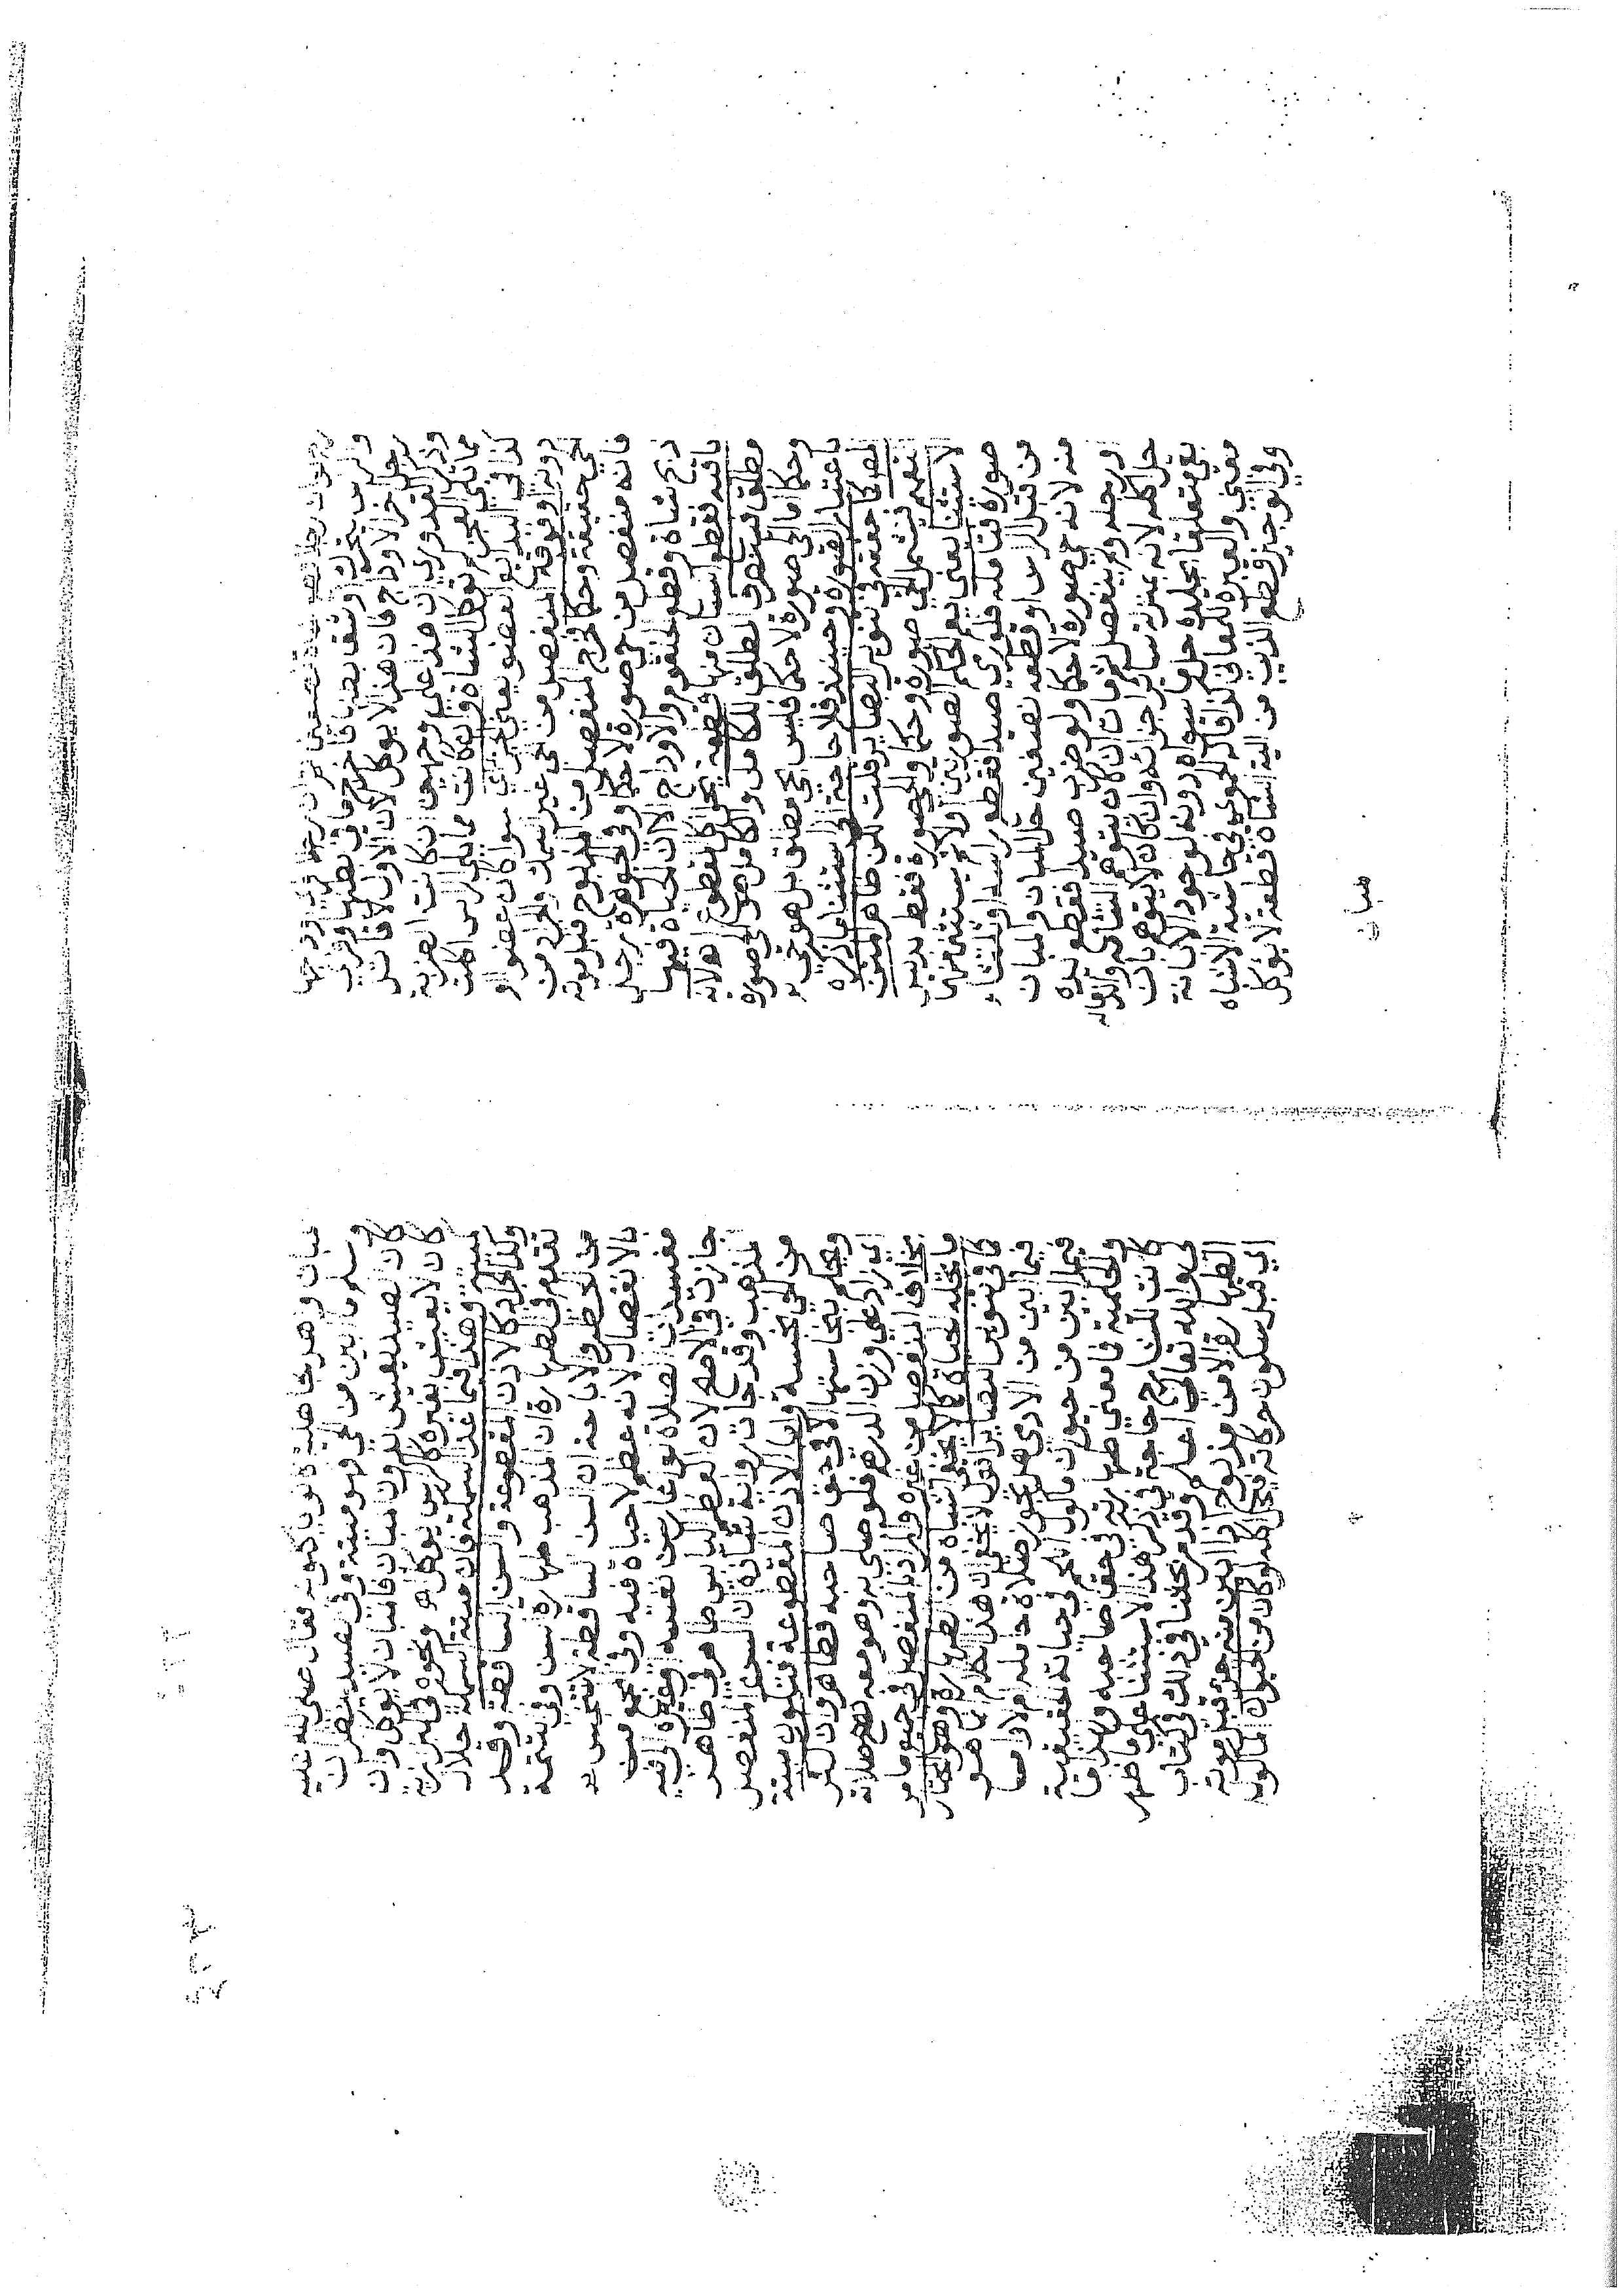 حيوان رجل شاة نصفين ثم ان رجلا فرى اودجها
والراس يتحرك او شق بطنها فاخرج ما في بطنها وفرى
رجل اخر الاوداج فان هذا لا يوكل لان الاول قاتل
وذكر القدوري ان هذا علي وجهين ان كانت الضربة
مما يلي العجز توكل الشاة وان كانت مما يلي الراس اكلت
كذا في البدايع العضو يعني الجزء سوا كان عضوا او
دونه او فوقه المنفصل من حي غير السمك والمراد من
حي حقيقة وحكما فخرج المنفصل من المذبوح قبل موته
فانه منفصل من حي صورة لا حكما وفي الجوهرة رجل
ذبح شاة وقطع الحلقوم والاوداج الا ان الحياة فيها
باقية فقطع انسان منها قطعة يحل اكل المقطوع
ومطلق فينصرف المطلق للكامل والكامل هو الحي صورة
وحكما اما الحي صورة لا حكما فليس بحي مطلق بل هو حي
باعتبار الصورة وحينئذ فلا حاجة الى استثنا ما ذكره
المص كما حققه في تنوير البصاير قلت لكن ظاهر المتون
تعميم فيشمل الحي صورة وحكما والحي صورة فقط بدليل
الاستثنا يعني يعم الحكم الصورتين اولا ثم يستثنى منها
صورة فتامله فلو رمى صيدا فقطع راسه او ثلثاه
من قبل الراس او قطعه نصفين حل المبان والمبان
منه لانه حي صورة لا حكما ولو ضرب صيدا فقطع يده
او رجله ولم ينفصل ثم مات ان كان يتوهم التئامه واندماله
حل اكله لانه بمنزلة ساير اجزائه وان كان لا يتوهم بان
بقي متعلقا بجلده حل ما سواه دونه لوجود الابانة
معنى والعبرة للمعاني كذا قاله الحموي في حاشية الاشباه
وفي الوجيز قطع الذيب من الية الشاة قطعة لا يوكل
مبان
مبان جاهلية كانوا ياكلونه فقال صلى الله عليه
وسلم ما ابين من الحي فهو ميتة وفي الصيد ينظر ان
كان الصيد يعيش بدون المبان فالمبان لا يوكل وان
كان لا يعيش بغيره كالراس يوكل هو وغيره في البزازية
كميتته وهذا فيما عدا السمكة فان ميتة السمك حلال
وكذا الجراد كالاذن المقطوعة والسن الساقطة وقد
تقدم في الطهارة ان المذهب طهارة السن وفي التتمة
من الحظر والاباحة ان السن الساقطة لا تنجس
بالانفصال لانه عظم لا حياة فيه وفي من
مفسدات الصلاة لو اعاد سن نفسه او غيره الى فيه
جازت في الاصح لان العظم اليابس طاهر في ظاهر
المذهب وقد جات رواية شاذة ان السن المنفصل
من الحي نجسة واما الاذن المقطوعة فتكون ميتة
ويحكم بنجاستها الا في حق صاحبه فطاهر وان كثر
اي زاد على وزن الدرهم فلو صلى به وهو معه تصح صلاته
بخلاف المنفصل من غيره والمراد بالمنفصل
ما تحله الحياة كما لا يخفى اشباه من الطهارة وهو المختار
كما في تنوير البصاير اقول لا يخفى ان هذا الكلام انما هو
فيما ابين من الادمي هل تجوز صلاة حامله ام لا اما
فيما ابين من حيوان ماكول اللحم في حياته الحقيقية
والحكمية فما معنى طهارته في حق صاحبه وبهذا ما
كانت للشارح حاجة في ذكر هذا الاستثنا على ما ظهر
لي والله تعالى اعلم وقدم بحثنا في ذلك في كتاب
الطهارة الا من مذبوح اذا ابين منه جزء قبل موته
اي قبل سكون حركاته فيحل اكله لو كان من الحيوان الماكول